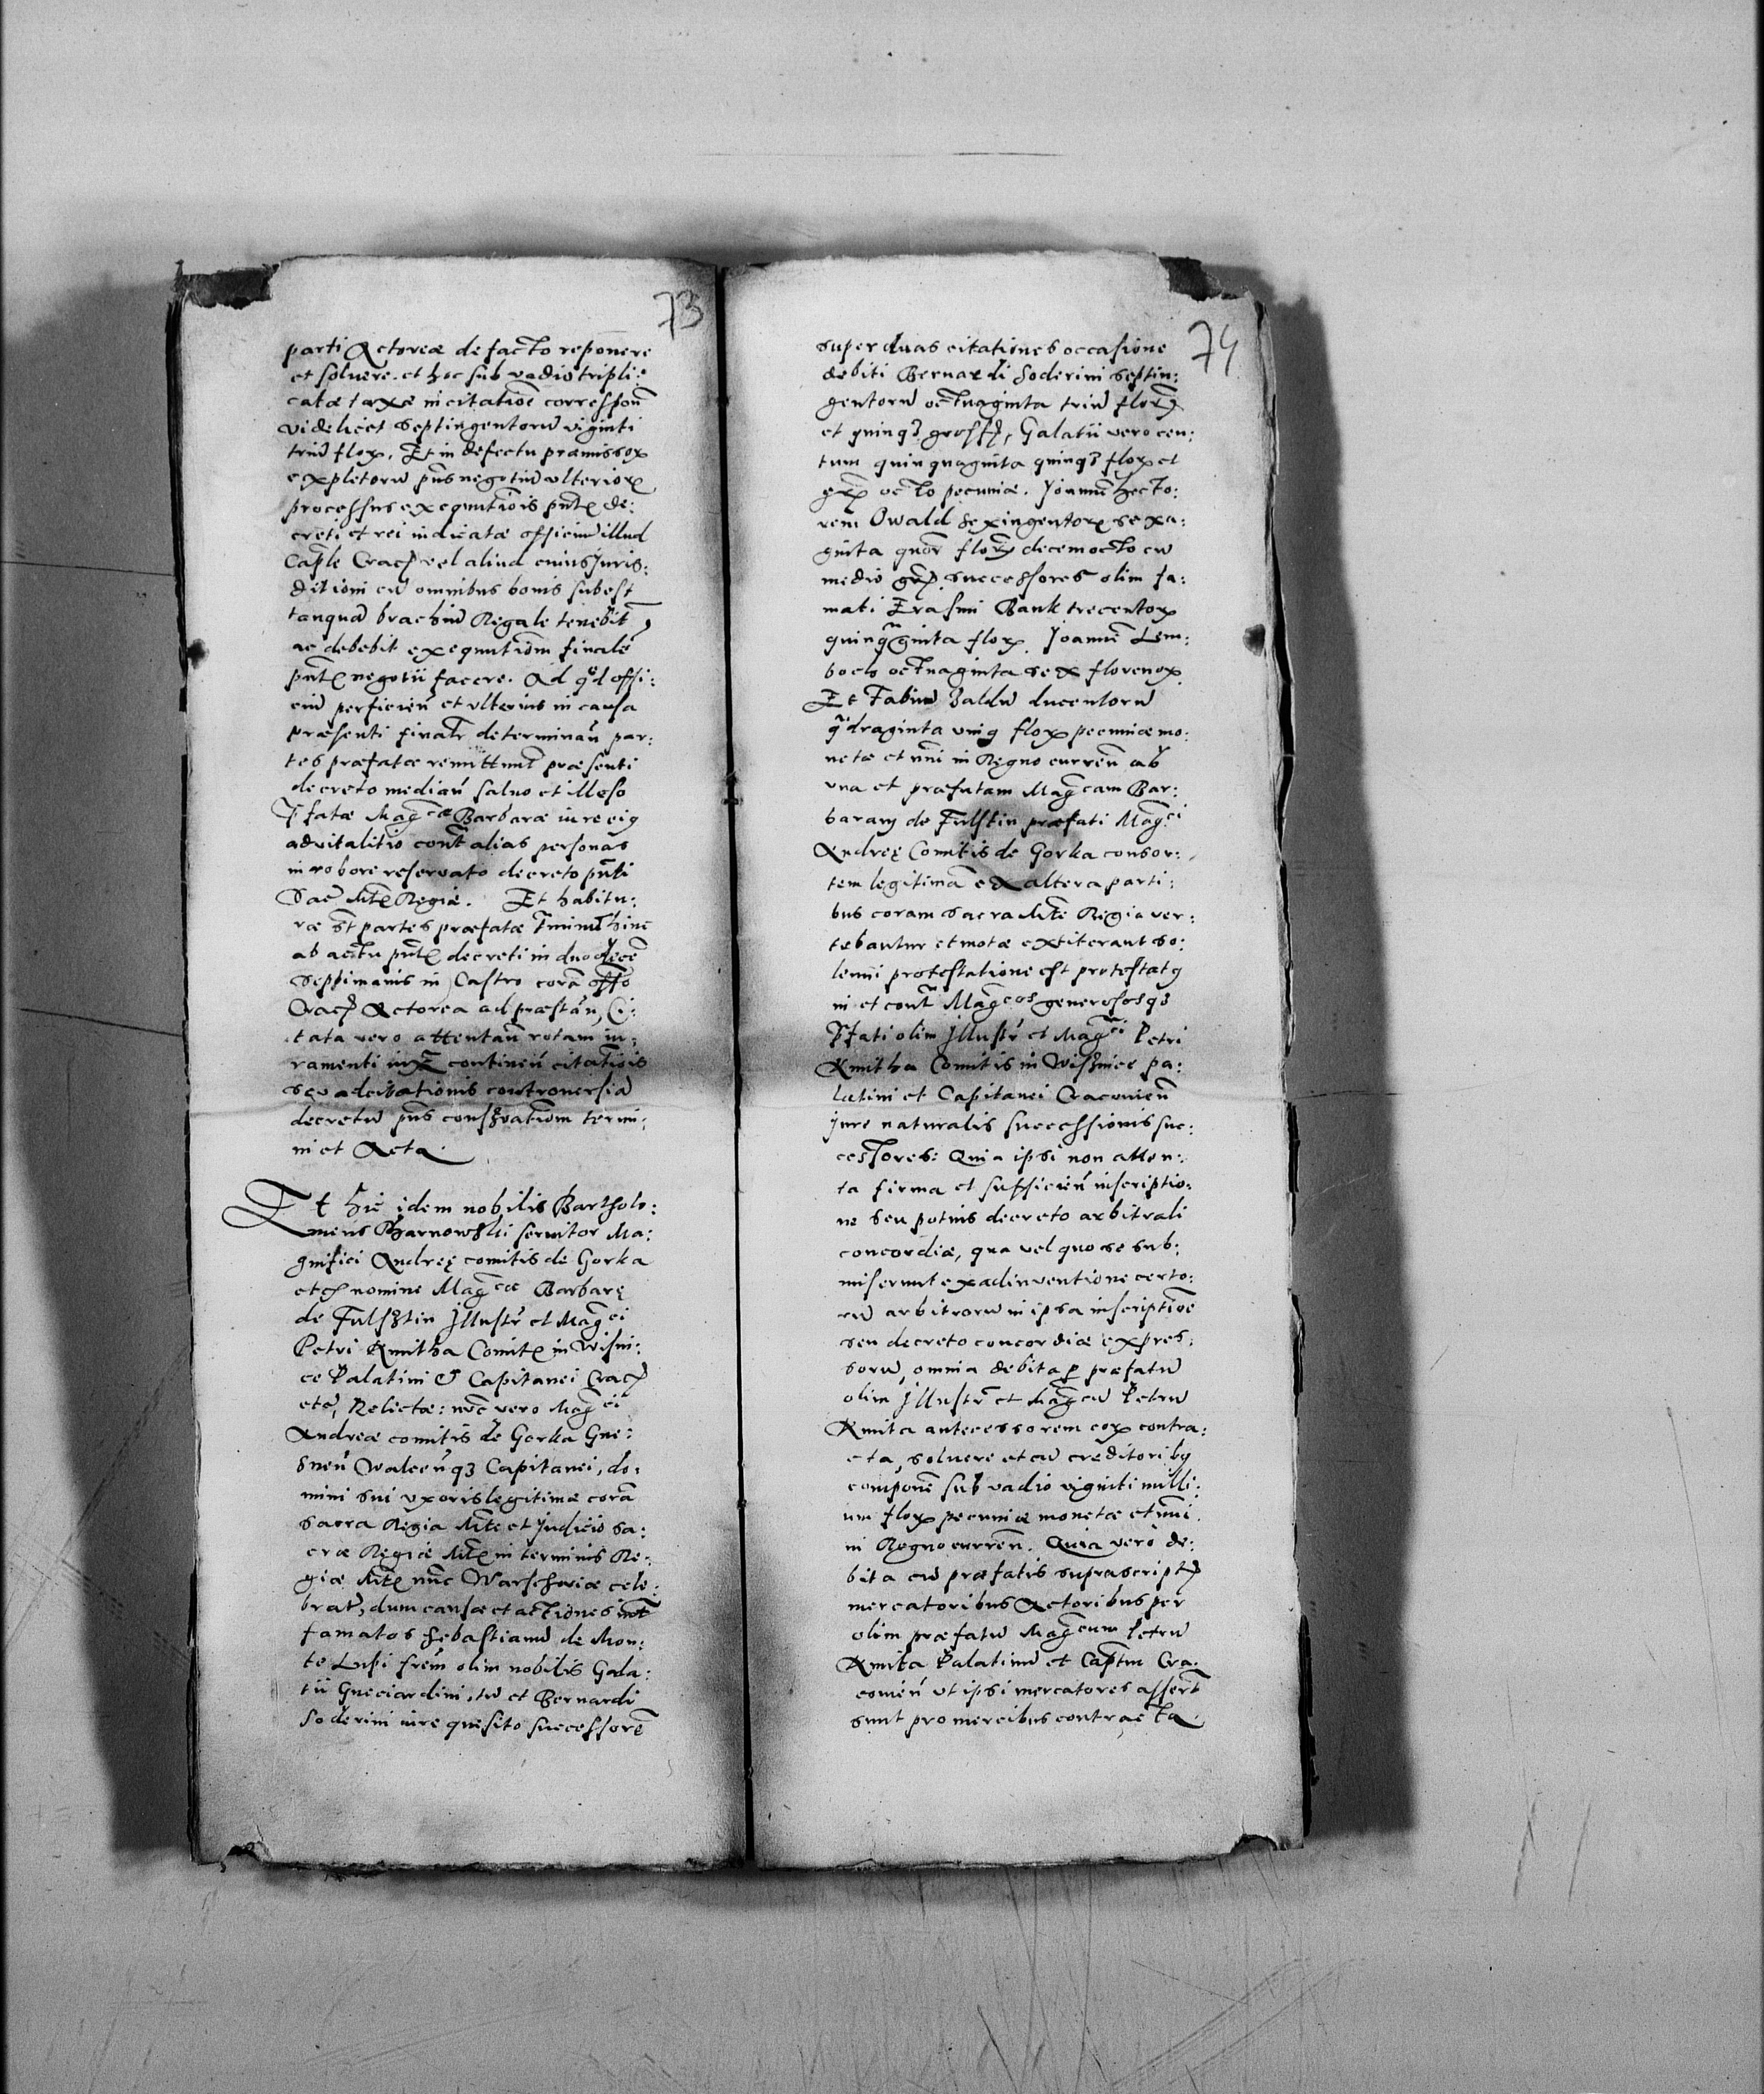 73
parti Actoreæ de facto reponere
et soluere. et hoc sub vadio tripli:
catæ taxæ in citatioē correspoñ
videlicet septingentorũ viginti
triũ floꝝ. Et in defectu præmissoꝝ
expletorũ pñs negotiũ vlterioꝝ
processus exequutiois pñtꝭ de:
creti et rei iudicatæ officiũ illud
Cap̃le Craçꝭ vel aliud cuius Juris:
ditioni cũ omnibus bonis subest
tanquã brachiũ Regale tenebit̃,
ac debebit exequutiõm finalẽ
pñtꝭ negotii facere. Ad qd̃ offi:
ciũ perficieñ et vlterius in causa
præsenti finalr̃ determinañ par:
tes præfatæ remittunt̃ præsenti
decreto mediañ saluo et illeso
P̃fatæ Mag̃cæ Barbaræ iure eiꝰ
aduitalitio cont̃ alias personas
in robore reseruato decreto pñti
Sac̃ Mtꝭ Regiæ. Et habitu:
ræ st̃ partes præfatæ t̃minũ hinc
ab actu pñtꝭ decreti in duodecẽ
septimanis in Castro corã offo
Craçꝭ Actorea ad præstañ, Ci:
tata vero attentañ rotam iu:
ramenti iuxᵗᵃ contineñ citatiois
seu adcitationis controuersiã
decretũ pñs consꝝuatiõm termi:
ni et Acta.
Et hic idem nobilis Bartholo:
meus Tharnowski seruitor Ma:
gnifici Andreę comitis de Gorka
etcꝭ nomine Mag̃cæ Barbarę
de Fulsztin Jllustr̃ et Mag̃ci
Petri Kmitha Comitꝭ in Wisni:
ce Palatini & Capitanei Craçꝭ
etc̃, Relictæ: nũc vero Mag̃ci
Andreæ comitis de Gorka Gne:
sneñ Walceñqꝫ Capitanei, do:
mini sui vxoris legitimæ corã
sacra Regia Mt̃e et Judicio sa:
cræ Regiæ Mtꝭ in terminis Re:
giæ Mtꝭ nũc Warschoviæ cele:
brat̃, dum causæ et actiones int̃
famatos Sebastianũ de Mon:
te Lupi frẽm olim nobilis Gala:
tii Guciardini, tũ et Bernardi
Soderini iure quesito successorẽ
74
super duas citationes occasione
debiti Bernardi Soderini septin:
gentorũ octuaginta triũ floꝝ
et quinqꝫ grossꝭ, Galatii vero cen:
tum quinquaginta quinqꝫ floꝝ et
grꝭ octo pecuniæ. Joannẽ Hecto:
rem Owald sexingentoꝝ sexa:
ginta quor̃ floꝝ decemocto cũ
medio grꝭ. successores olim fa:
mati Erasmi Bank trecentoꝝ
quinqᵃginta floꝝ. Joannẽ Lem:
bock octuaginta sex florenoꝝ
Et Fabiũ Baldũ ducentorũ
qᵃdraginta vniꝰ floꝝ pecuniæ mo:
netæ et nñi in Regno curreñ ab
vna et præfatam Mag̃cam Bar:
baram de Fulstin præfati Mag̃ci
Andreę Comitis de Gorka consor:
tem legitimã ex altera parti:
bus coram sacra Mt̃e Regia ver:
tebantur et motæ extiterant so:
lenni protestatione est protestatꝰ
in et cont̃ Mag̃cos generososqꝫ
P̃fati olim Jllustr̃ et Mag̃ci Petri
Kmitha Comitis in Wisznice pa:
latini et Capitanei Cracouieñ
Jure naturalis successionis suc:
cessores: Quia ipsi non atten:
ta firma et sufficieñ inscriptio:
ne seu potius decreto arbitrali
concordiæ, qua vel quo se sub:
miserunt ex adinventione certo:
rũ arbitrorũ in ipsa inscriptiõe
seu decreto concordiæ expres:
sorũ, omnia debita ꝑ præfatũ
olim Jllustr̃ et Mag̃cũ Petrũ
Kmita antecessorem eoꝝ contra:
cta, soluere et cũ creditoribꝰ
componẽ sub vadio viginti milli:
um floꝝ pecuniæ monetæ et nñi
in Regno curreñ. Quia vero de:
bita cũ præfatis suprascriptꝭ
mercatoribus Actoribus per
olim præfatũ Mag̃cum Petrũ
Kmita Palatinũ et Cap̃tm Cra:
couieñ vt ipsi mercatores assert̃
sunt pro mercibus contracta.